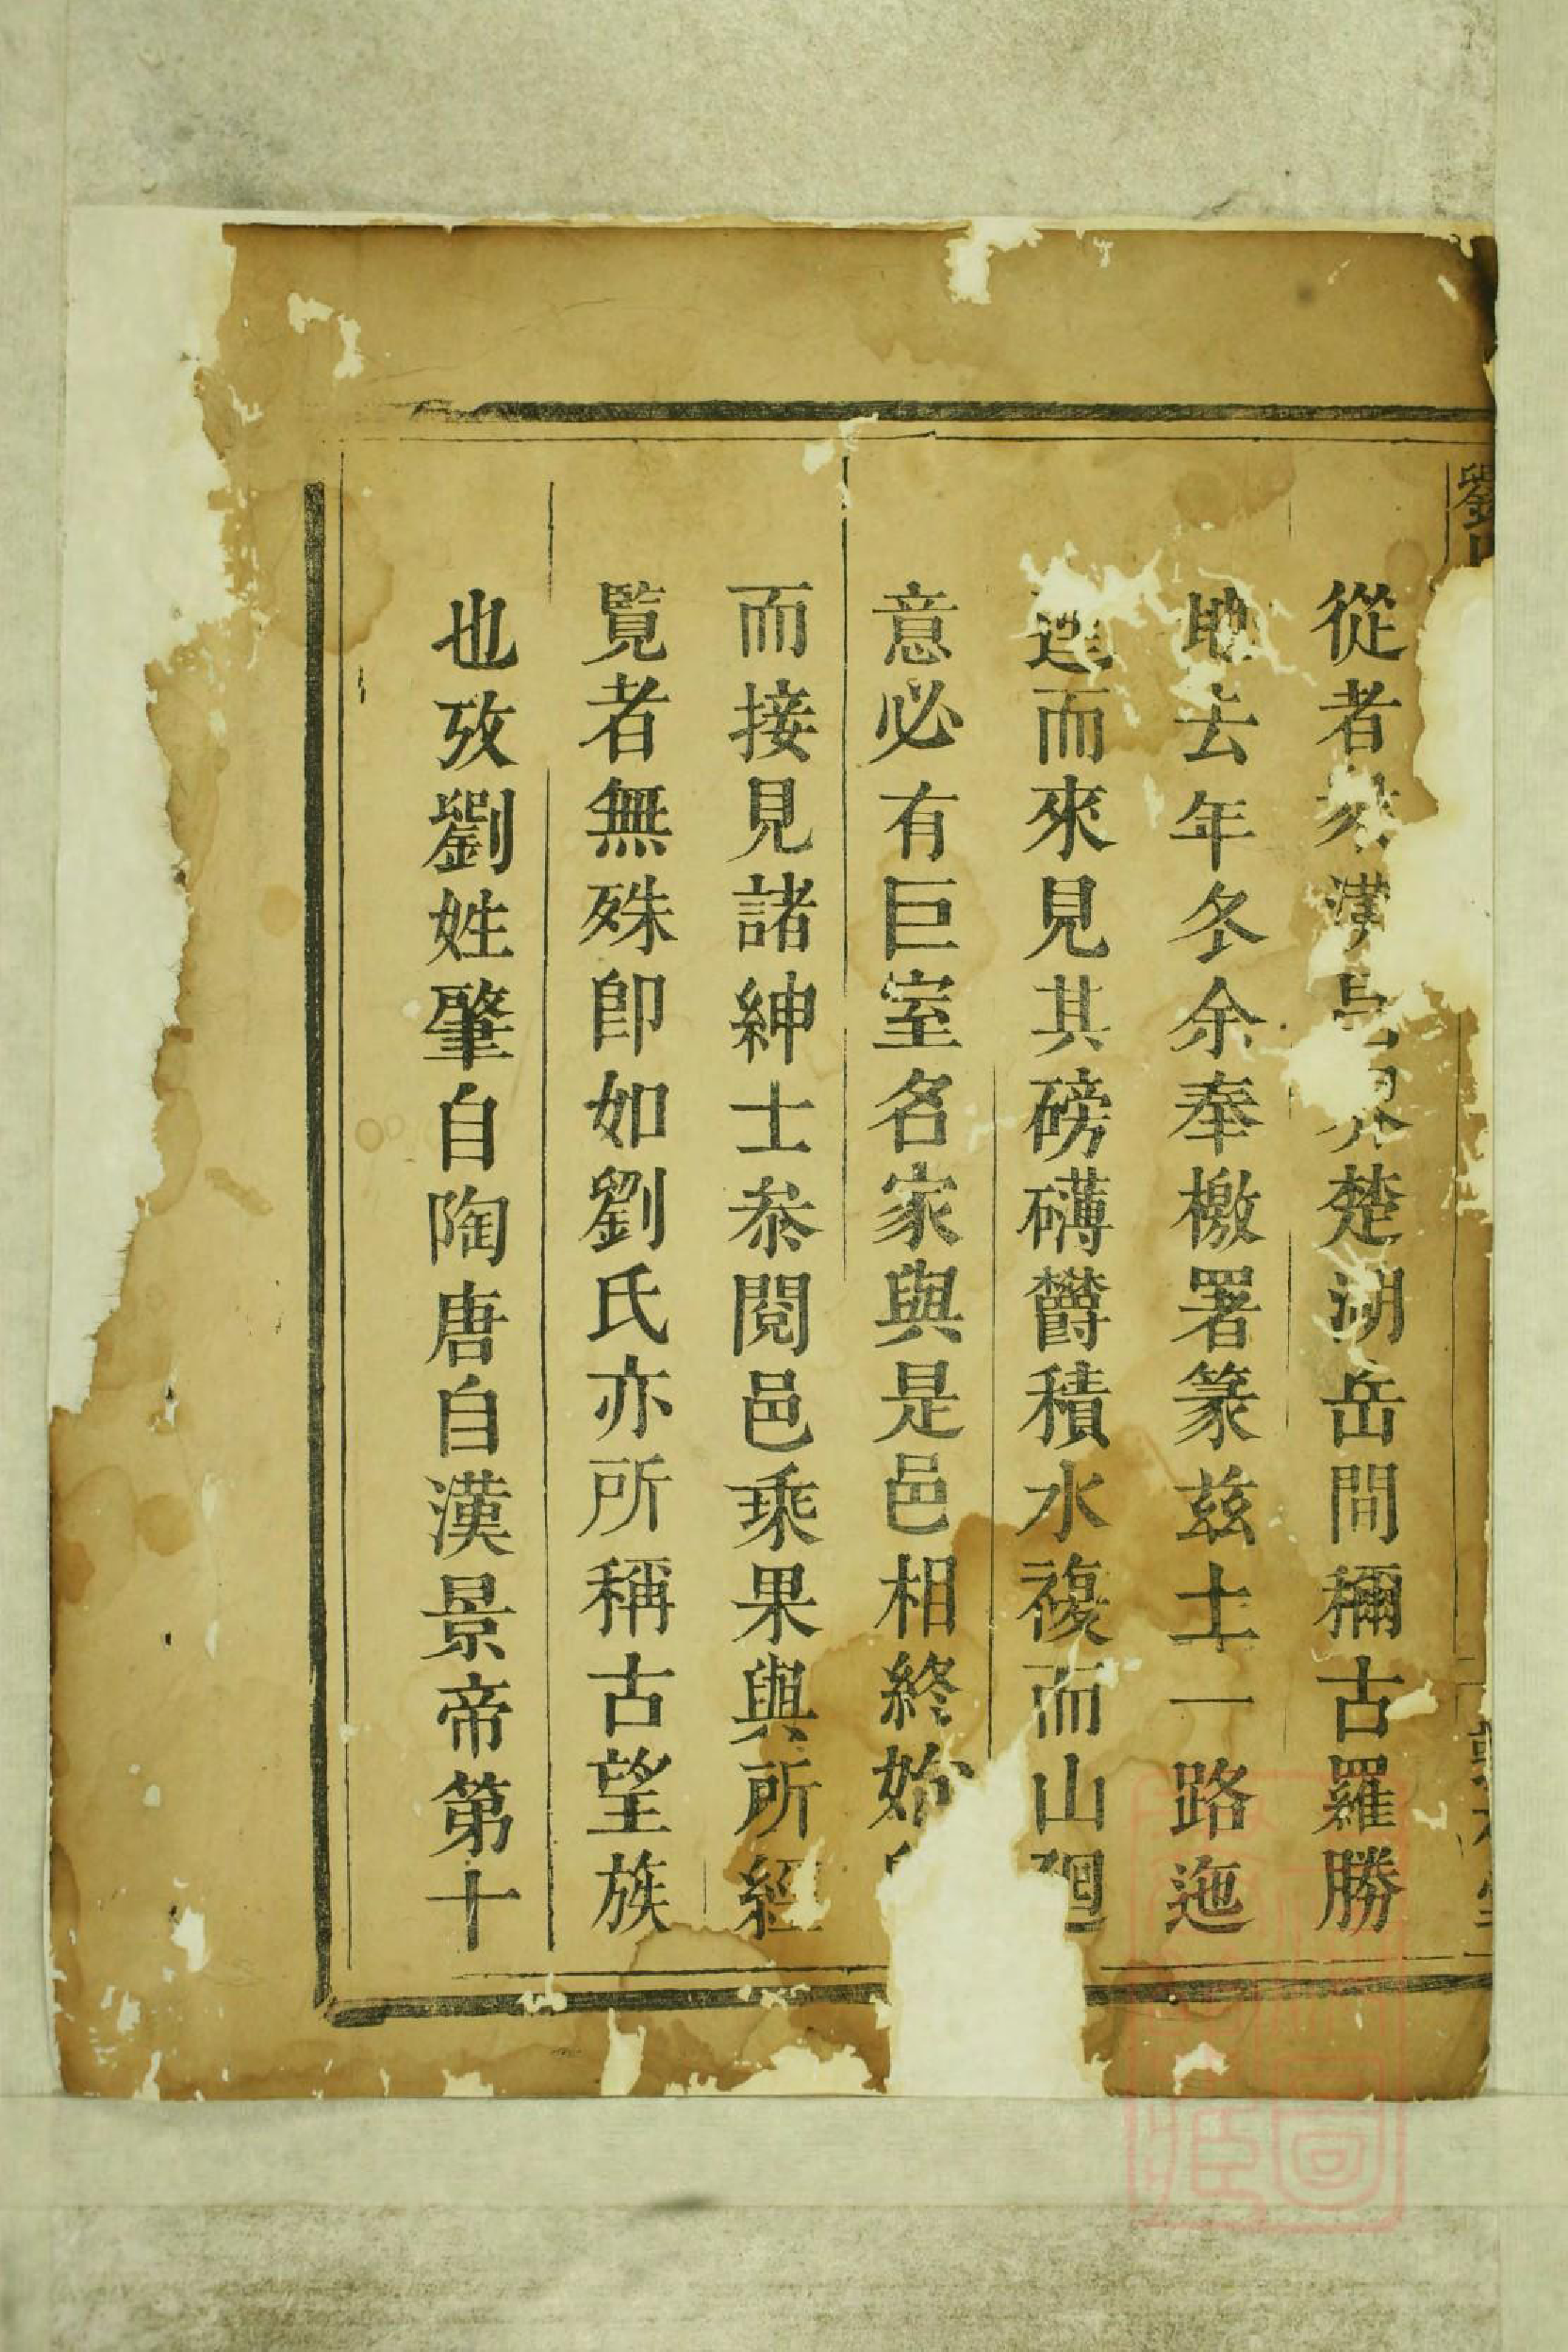 劉
從者 漢 界楚湖岳間稱古羅勝
地去年冬余奉檄署篆茲土一路迤
邐而來見其磅礴欝積水複而山廻
意必有巨室名家與是邑相終始
而接見諸紳士叅閱邑乘果與所經
覧者無殊卽如劉氏亦所稱古望族
也攷劉姓肇自陶唐自漢景帝第十